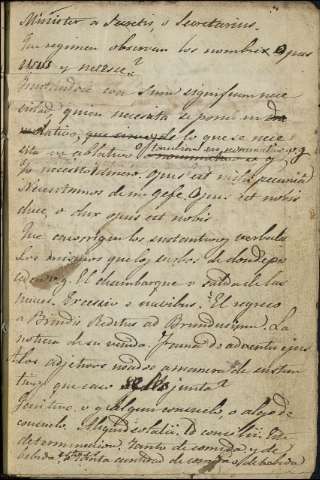 Minister a Secretis, o Secretarius.
Que regimen observan los nombres Opus
Usus y necesse?
Juntandose con Sum significan nece
sidad, quien necesita se pone en da
tivo, que sirve de lo que se nece
sita en ablativo o tambien en nominativo v.g.
Yo necesito dinero. Opus est mihi pecunia
Necesitamos de un Gefe. Opus est nobis
duce, o dux opus est nobis
Que caso rigen los sustantivos verbales
Los mismos que los verbos de donde pro
ceden v.g. El desembarque o salida de las
naves. Egressio e navibus. El regreso
a Brindis Reditus ad Brundusium. La
noticia de su venida. Fama de adventu ejus
Los adjetivos usados a manera de sustan
tivos que caso se les junta?
Genitivo, v.g. algun consuelo, o algo de
consuelo. Aliquid solatii. Id consilii. Esa
determinacion. Tanto de comida y de
bebida tanta cantidad de comida o de bebida